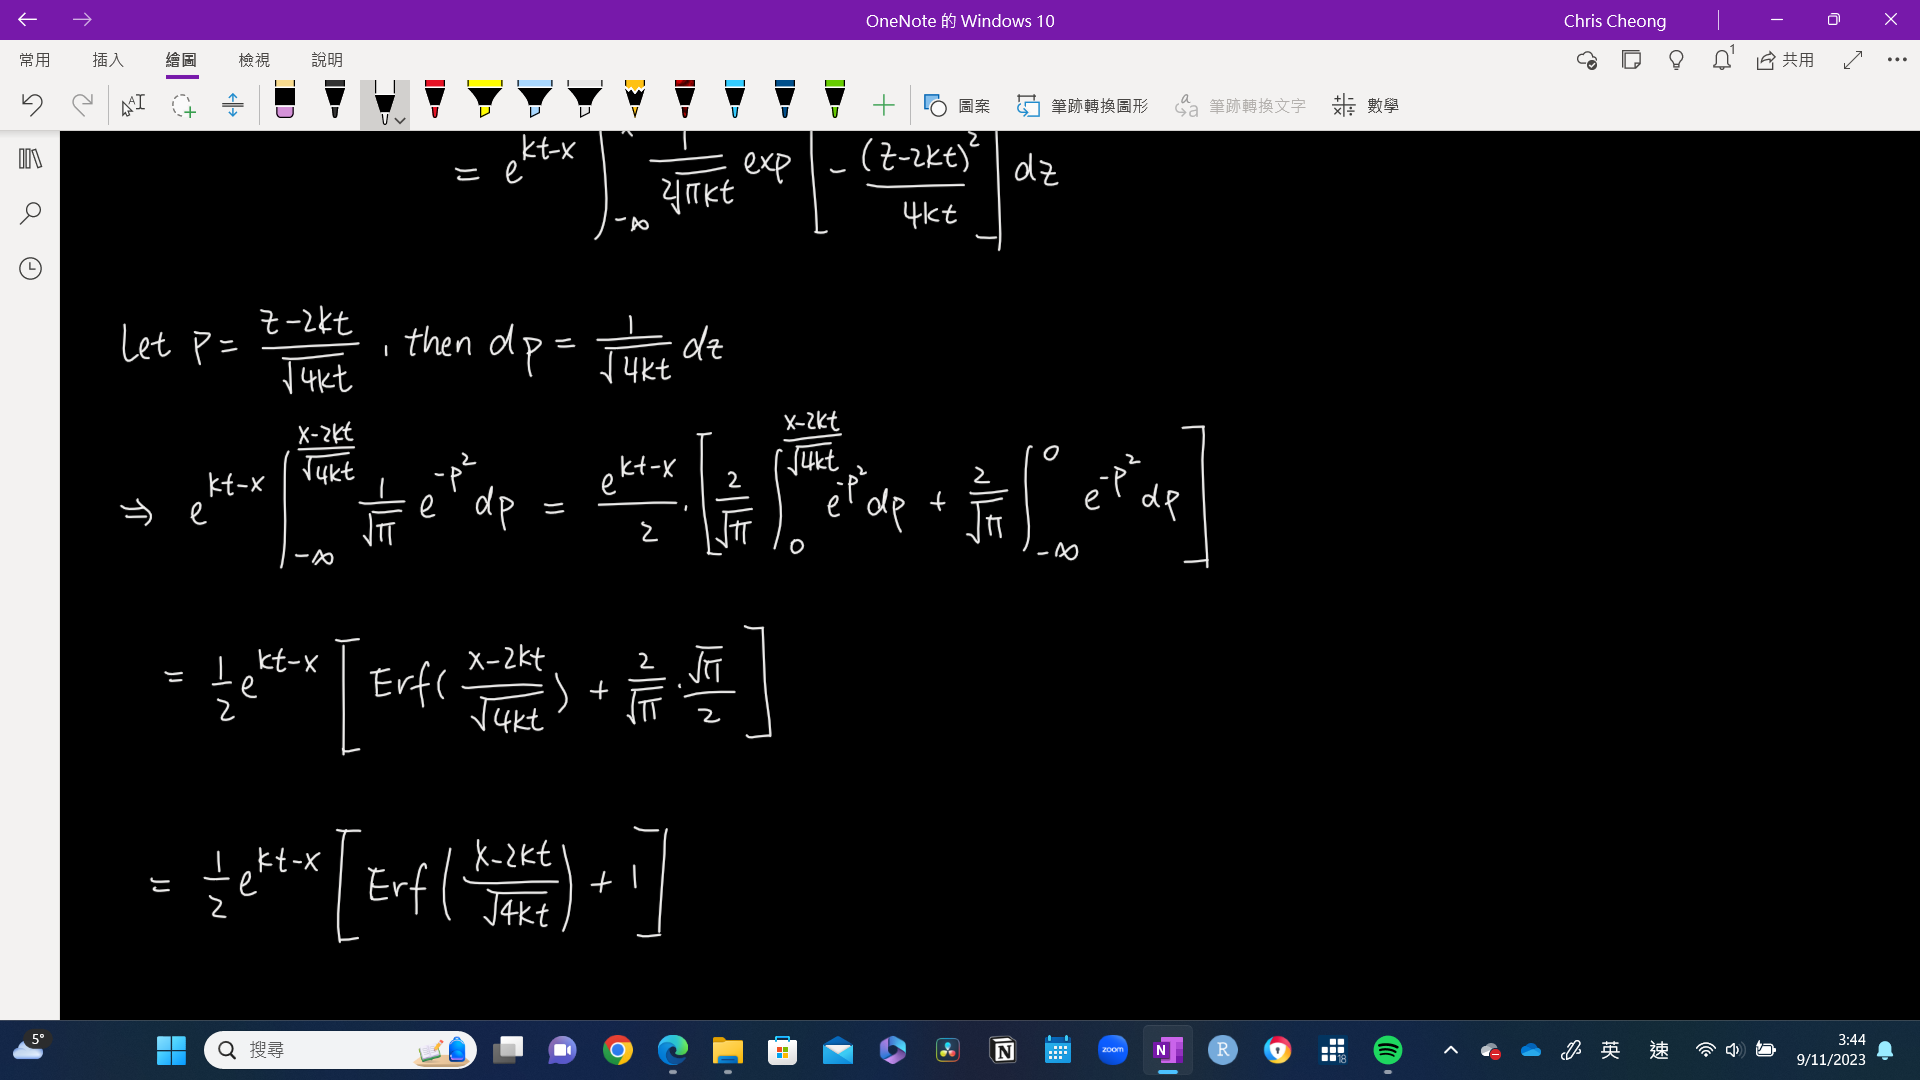 OneNote 的 Windows 10
Chris Cheong
常用 插入 繪圖 檢視 說明
1 共用
圖案 筆跡轉換圖形 筆跡轉換文字 數學
= e^{kt-x} ∫_{-∞}^{x} \frac{1}{2\sqrt{πkt}} exp [ - \frac{(z-2kt)^2}{4kt} ] dz
Let p = \frac{z-2kt}{\sqrt{4kt}} , then dp = \frac{1}{\sqrt{4kt}} dz
⇒ e^{kt-x} ∫_{-∞}^{\frac{x-2kt}{\sqrt{4kt}}} \frac{1}{\sqrt{π}} e^{-p^2} dp = \frac{e^{kt-x}}{2} · [ \frac{2}{\sqrt{π}} ∫_{0}^{\frac{x-2kt}{\sqrt{4kt}}} e^{-p^2} dp + \frac{2}{\sqrt{π}} ∫_{-∞}^{0} e^{-p^2} dp ]
= \frac{1}{2} e^{kt-x} [ Erf( \frac{x-2kt}{\sqrt{4kt}} ) + \frac{2}{\sqrt{π}} · \frac{\sqrt{π}}{2} ]
= \frac{1}{2} e^{kt-x} [ Erf( \frac{x-2kt}{\sqrt{4kt}} ) + 1 ]
5°
搜尋
zoom
N
R
18
英 速
3:44
9/11/2023